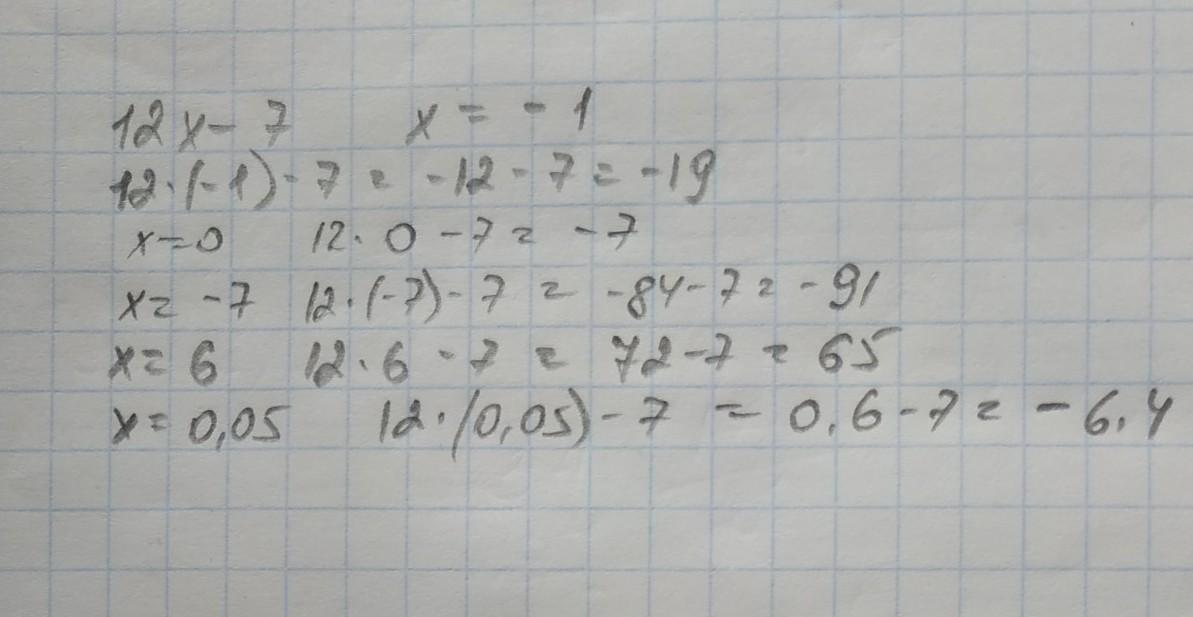 12x - 7 x = -1
12·(-1) - 7 = -12 - 7 = -19
x = 0 12·0 - 7 = -7
x = -7 12·(-7) - 7 = -84 - 7 = -91
x = 6 12·6 - 7 = 72 - 7 = 65
x = 0,05 12·(0,05) - 7 = 0,6 - 7 = -6.4